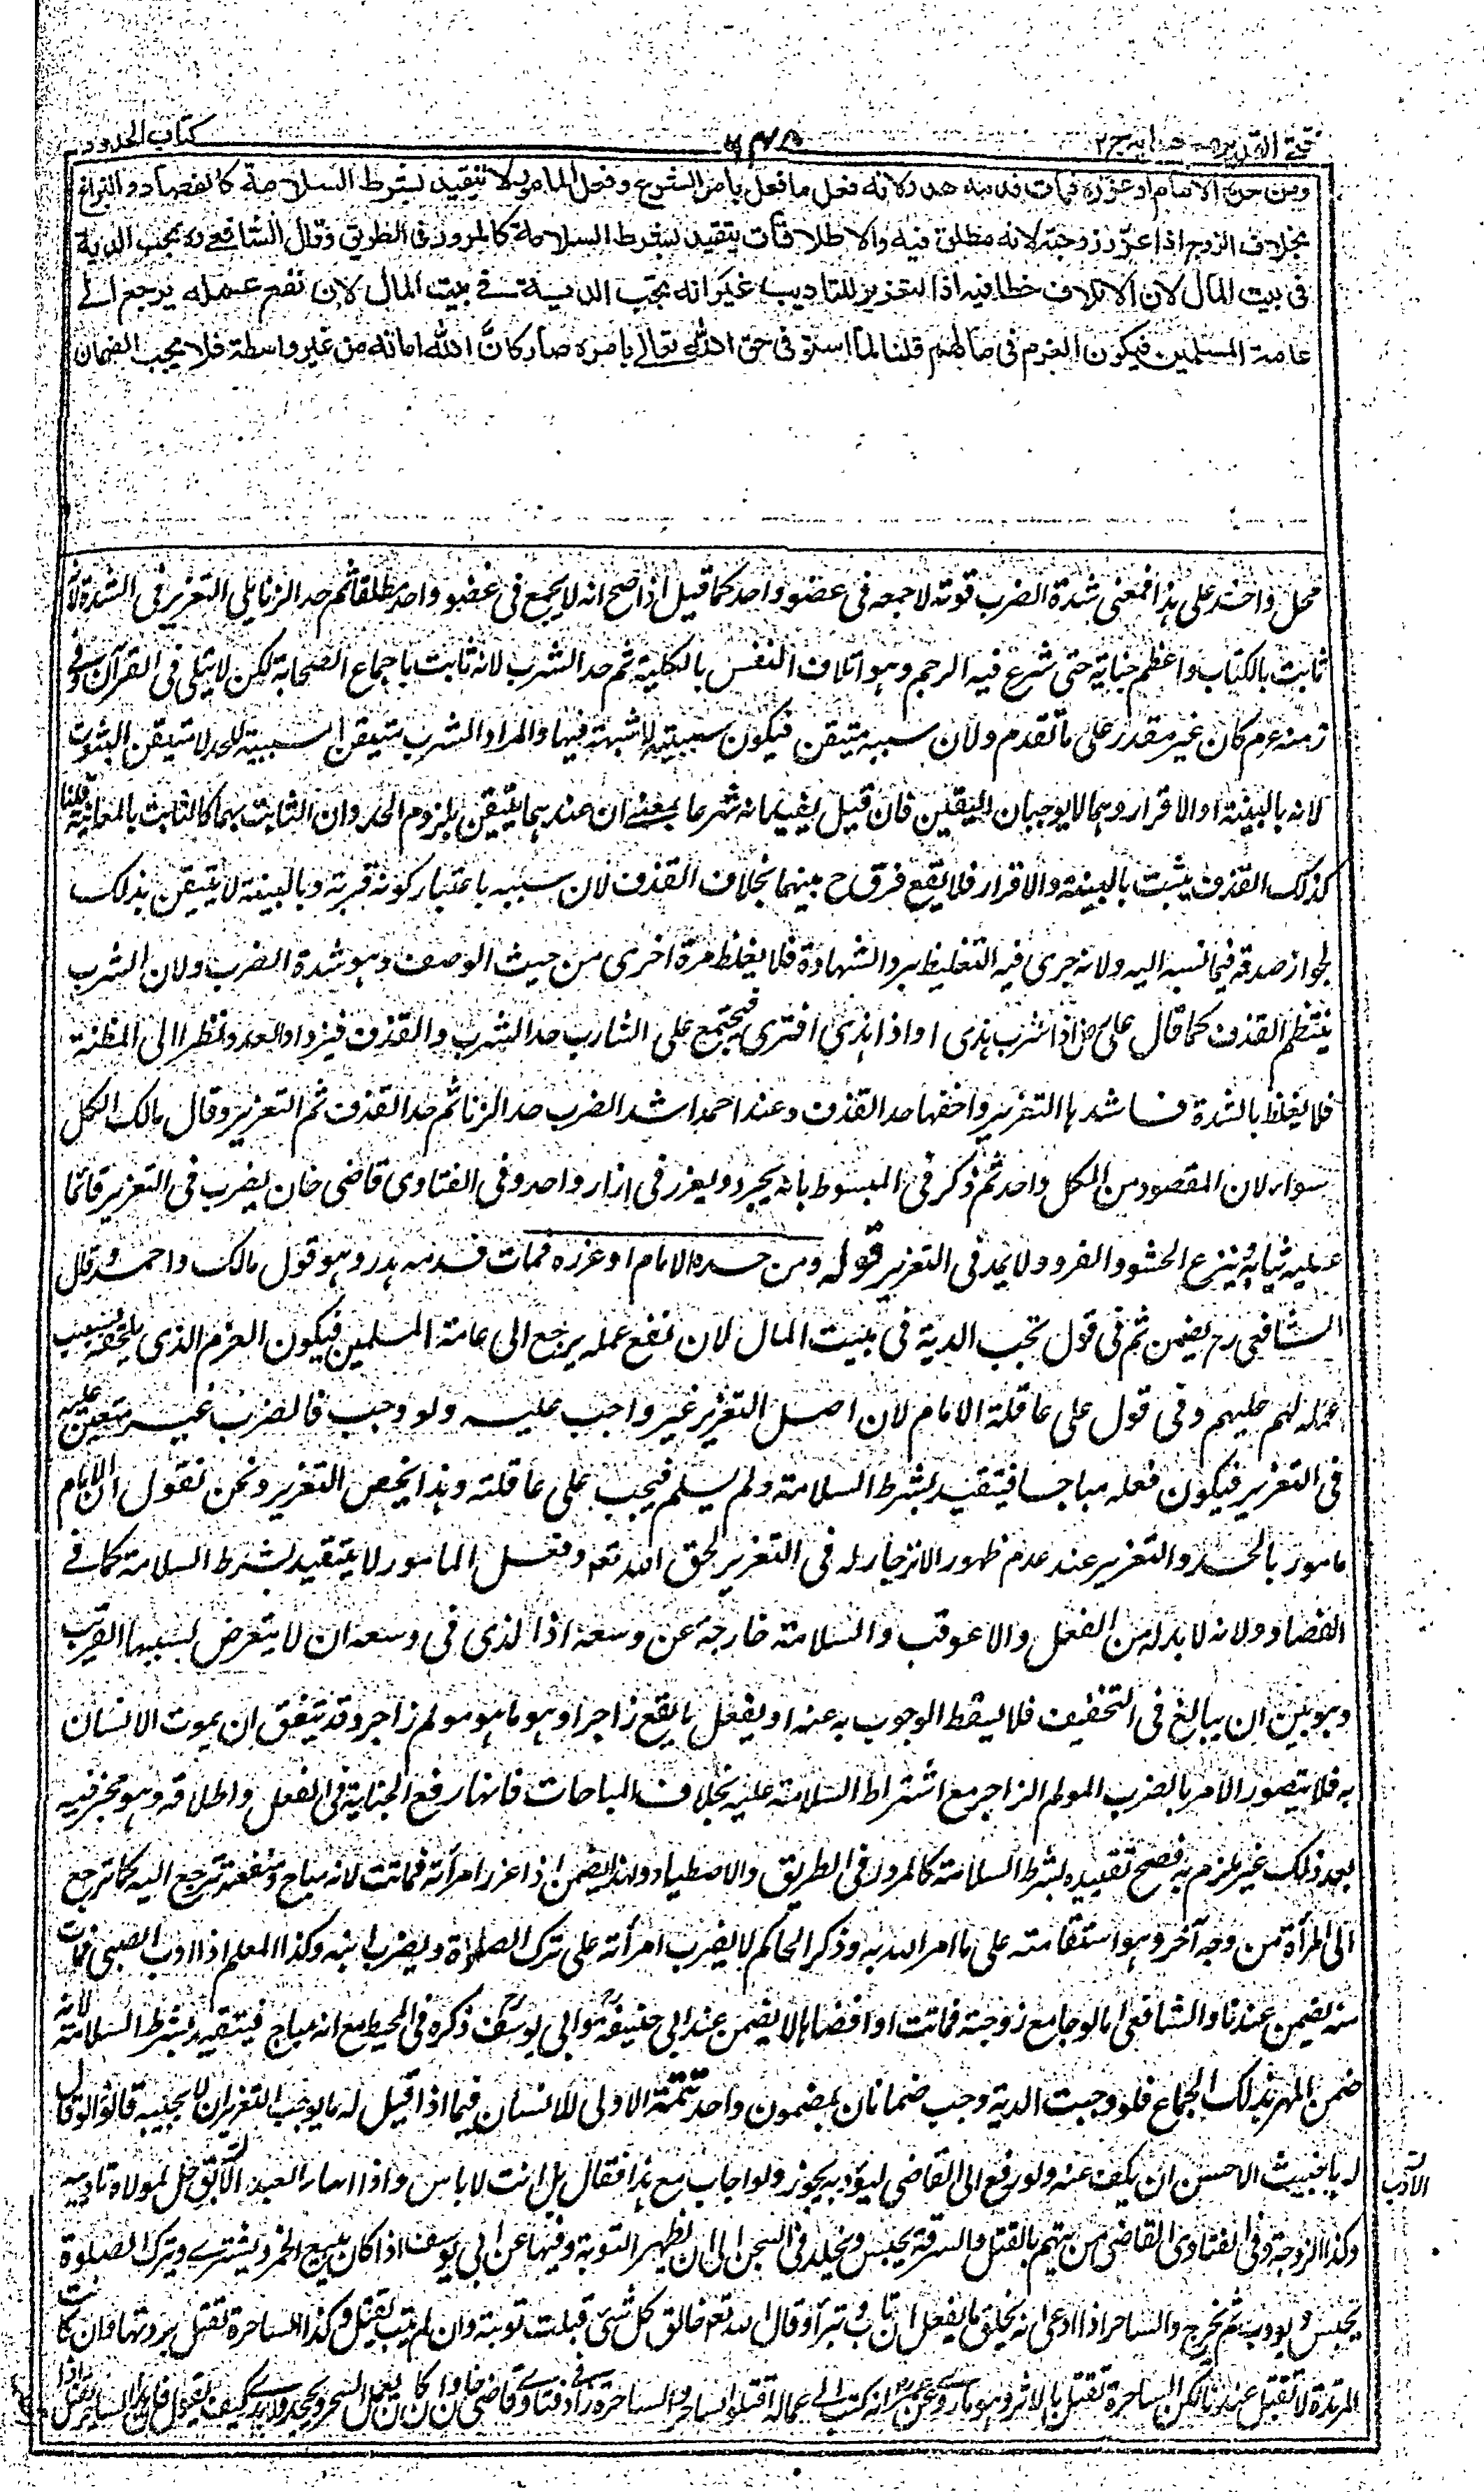 فتح القدير مع هدايه ج ٢
كتاب الحدود
ومن حده الامام او عزره فمات فدمه هدر لانه فعل ما فعل بامر الشرع وفعل المامور لا يتقيد بشرط السلامة كالفصاد والبزاغ
بخلاف الزوج اذا عزر زوجته لانه مطلق فيه والاطلاقات يتقيد بشرط السلامة كالمرور فى الطريق وقال الشافعى ره يجب الدية
فى بيت المال لان الاتلاف خطا فيه اذا لتعزير للتاديب غير انه تجب الدية فے بيت المال لان نفع عمله يرجع الے
عامة المسلمين فيكون الغرم فى مالهم قلنا لما استوفى حق الله تعالے بامره صار كان الله اماته من غير واسطة فلا يجب الضمان
محل واحد على هذا فمعنى شدة الضرب قوته لا جمعه فى عضو واحد كما قيل اذا صح انه لا يجمع فى عضو واحد مطلقا ثم حد الزنا يلى التعزير فى الشدة لانه
ثابت بالكتاب واعظم جناية حتى شرع فيه الرجم وهو اتلاف النفس بالكلية ثم حد الشرب لانه ثابت باجماع الصحابة لكن لا يتلى فى القرآن وفى
زمنه عم كان غير مقدر على ما تقدم ولان سببه متيقن فيكون سببيته لا شبهة فيها والمراد الشرب متيقن السببية للحد لا متيقن الثبوت
لانه بالبينة او الاقرار وهما لا يوجبان اليقين فان قيل يفيدانه شرعا بمعنے ان عندهما يتيقن بلزوم الحد وان الثابت بهما كالثابت بالمعاينة قلنا
كذلك القذف يثبت بالبينة والاقرار فلا يقع فرق ح بينهما بخلاف القذف لان سببه باعتبار كونه فرية وبالبينة لا يتيقن بذلك
لجواز صدقه فيما نسبه اليه ولانه جرى فيه التغليظ برد الشهادة فلا يغلظ مرة اخرى من حيث الوصف وهو شدة الضرب ولان الشرب
ينتظم القذف كما قال على رض اذا شرب هذى واذا هذى افترى فيجتمع على الشارب حد الشرب والقذف فيزداد العدد نظرا الى المظنة
فلا يغلظ بالشدة فاشدها التعزير واخفها حد القذف وعند احمد اشد الضرب حد الزنا ثم حد القذف ثم التعزير وقال مالك الكل
سواء لان المقصود من الكل واحد ثم ذكر فى المبسوط بانه يجرد ويعزر فى ازار واحد وفى الفتاوى قاضى خان يضرب فى التعزير قائما
عليه ثيابه وينزع الحشو والفرو ولا يمد فى التعزير قوله ومن حده الامام او عزره فمات فدمه هدر وهو قول مالك واحمد وقال
الشافعى رح يضمن ثم فى قول تجب الدية فى بيت المال لان نفع عمله يرجع الى عامة المسلمين فيكون الغرم الذى يلحقه بسبب
عمله لهم عليهم وفى قول على عاقلة الامام لان اصل التعزير غير واجب عليه ولو وجب فالضرب غير متعين عليه
فى التعزير فيكون فعله مباحا فيتقيد بشرط السلامة ولم يسلم فيجب على عاقلته وهذا يخص التعزير ونحن نقول ان الامام
مامور بالحد والتعزير عند عدم ظهور الانزجار له فى التعزير لحق الله تعه وفعل المامور لا يتقيد بشرط السلامة كما فے
الفصاد ولانه لا بد له من الفعل والا عوقب والسلامة خارجة عن وسعه اذ الذى فى وسعه ان لا يتعرض لسببها القريب
وهو بين ان يبالغ فى التخفيف فلا يسقط الوجوب به عنه او يفعل ما يقع زاجرا وهو ما هو مولم زاجر وقد يتفق ان يموت الانسان
به فلا يتصور الامر بالضرب المولم الزاجر مع اشتراط السلامة عليه بخلاف المباحات فانها رفع الجناية فى الفعل واطلاقه وهو مخير فيه
بعد ذلك غير ملزم به فصح تقييده بشرط السلامة كالمرور فى الطريق والاصطياد ولهذا يضمن اذا عزر امرأته فماتت لانه مباح ومنفعته ترجع اليه كما ترجع
الى المرأة من وجه آخر وهو استقامته على ما امر الله به وذكر الحاكم لا يضرب امرأته على ترك الصلاة ويضرب ابنه وكذا المعلم اذا ادب الصبى فمات
منه يضمن عندنا والشافعى اما لو جامع زوجته فماتت او افضاها لا يضمن عند ابى حنيفة رح وابى يوسف رح ذكره فى المحيط مع انه مباح فيتقيد بشرط السلامة لانه
ضمن المهر بذلك الجماع فلو وجبت الدية وجب ضمانان بمضمون واحد تتمة الاولى للانسان فيما اذا قيل له ما يوجب التعزير ان لا يجيبه قالوا لو قال
له يا خبيث الاحسن ان يكف عنه ولو رفع الى القاضى ليؤدبه يجوز ولو اجاب مع هذا فقال بل انت لا باس واذا اساء العبد الآبق حل لمولاه تاديبه
الادب
وكذا الزوجة وفى الفتاوى القاضى من يتهم بالقتل والسرقة يحبس ويخلد فى السجن الى ان يظهر التوبة وفيها عن ابى يوسف اذا كان يبيع الخمر ويشترے ويترك الصلوة
يحبس ويودب ثم يخرج والساحر اذا ادعى انه يخلق ما يفعل ان تاب وتبرأ وقال الله تعه خالق كل شئ قبلت توبته وان لم يتب يقتل وكذا الساحرة تقتل بردتها وان كانت
المرتدة لا تقتل عندنا لكن الساحرة تقتل بالاثر وهو ما روے عن عمر رض انه كتب الے عماله اقتلوا الساحر والساحرة زاد فے فتاوے قاضى